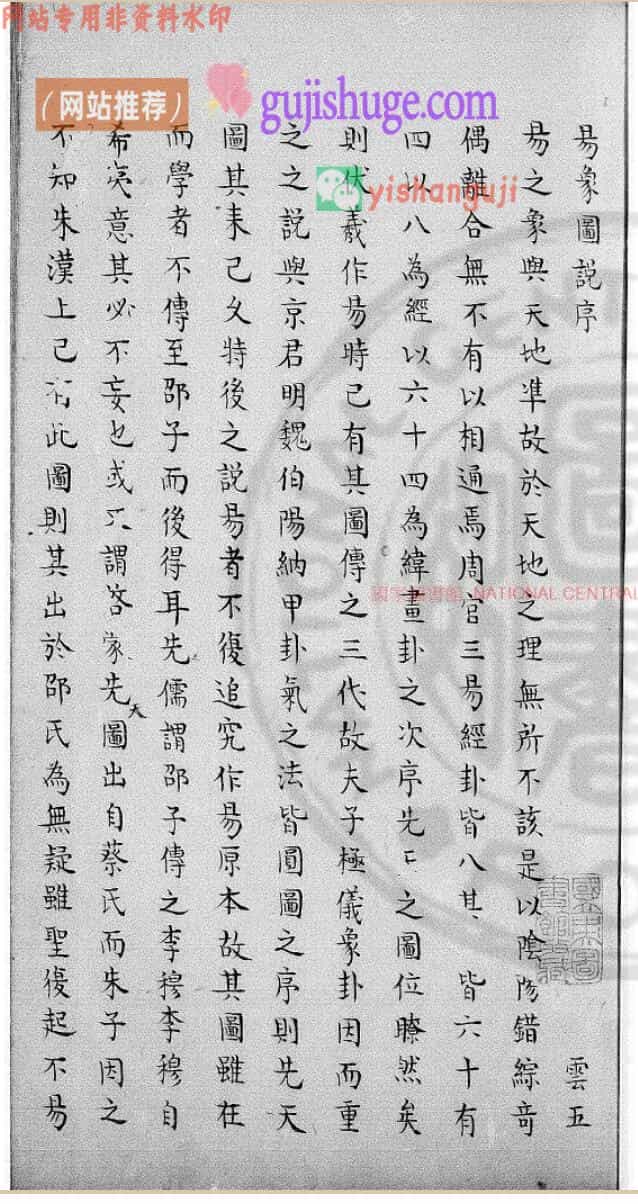 网站专用非资料水印
（网站推荐）
gujishuge.com
yishanguji
國家圖書館 NATIONAL CENTRAL
易象圖說序
雲五
易之象與天地準故於天地之理無所不該是以陰陽錯綜竒
偶離合無不有以相通焉周官三易經卦皆八其 皆六十有
四以八為經以六十四為緯畫卦之次序先 之圖位瞭然矣
則伏羲作易時已有其圖傳之三代故夫子極儀象卦因而重
之之說與京君明魏伯陽納甲卦氣之法皆圓圖之序則先天
圖其来已久特後之說易者不復追究作易原本故其圖雖在
而學者不傳至邵子而後得耳先儒謂邵子傳之李穆李穆自
希夷意其必不妄也或 謂 家先天圖出自蔡氏而朱子因之
不知朱漢上已有此圖則其出於邵氏為無疑雖聖復起不易